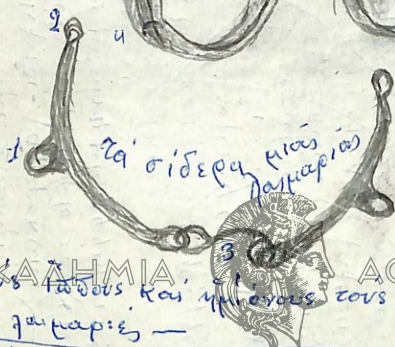 2
4
1
τά σίδερα μιάς
λαιμαριάς
3
ΚΑΔΗΜΙΑ
ίππους καί ημιόνους τούς
λαιμαριές —